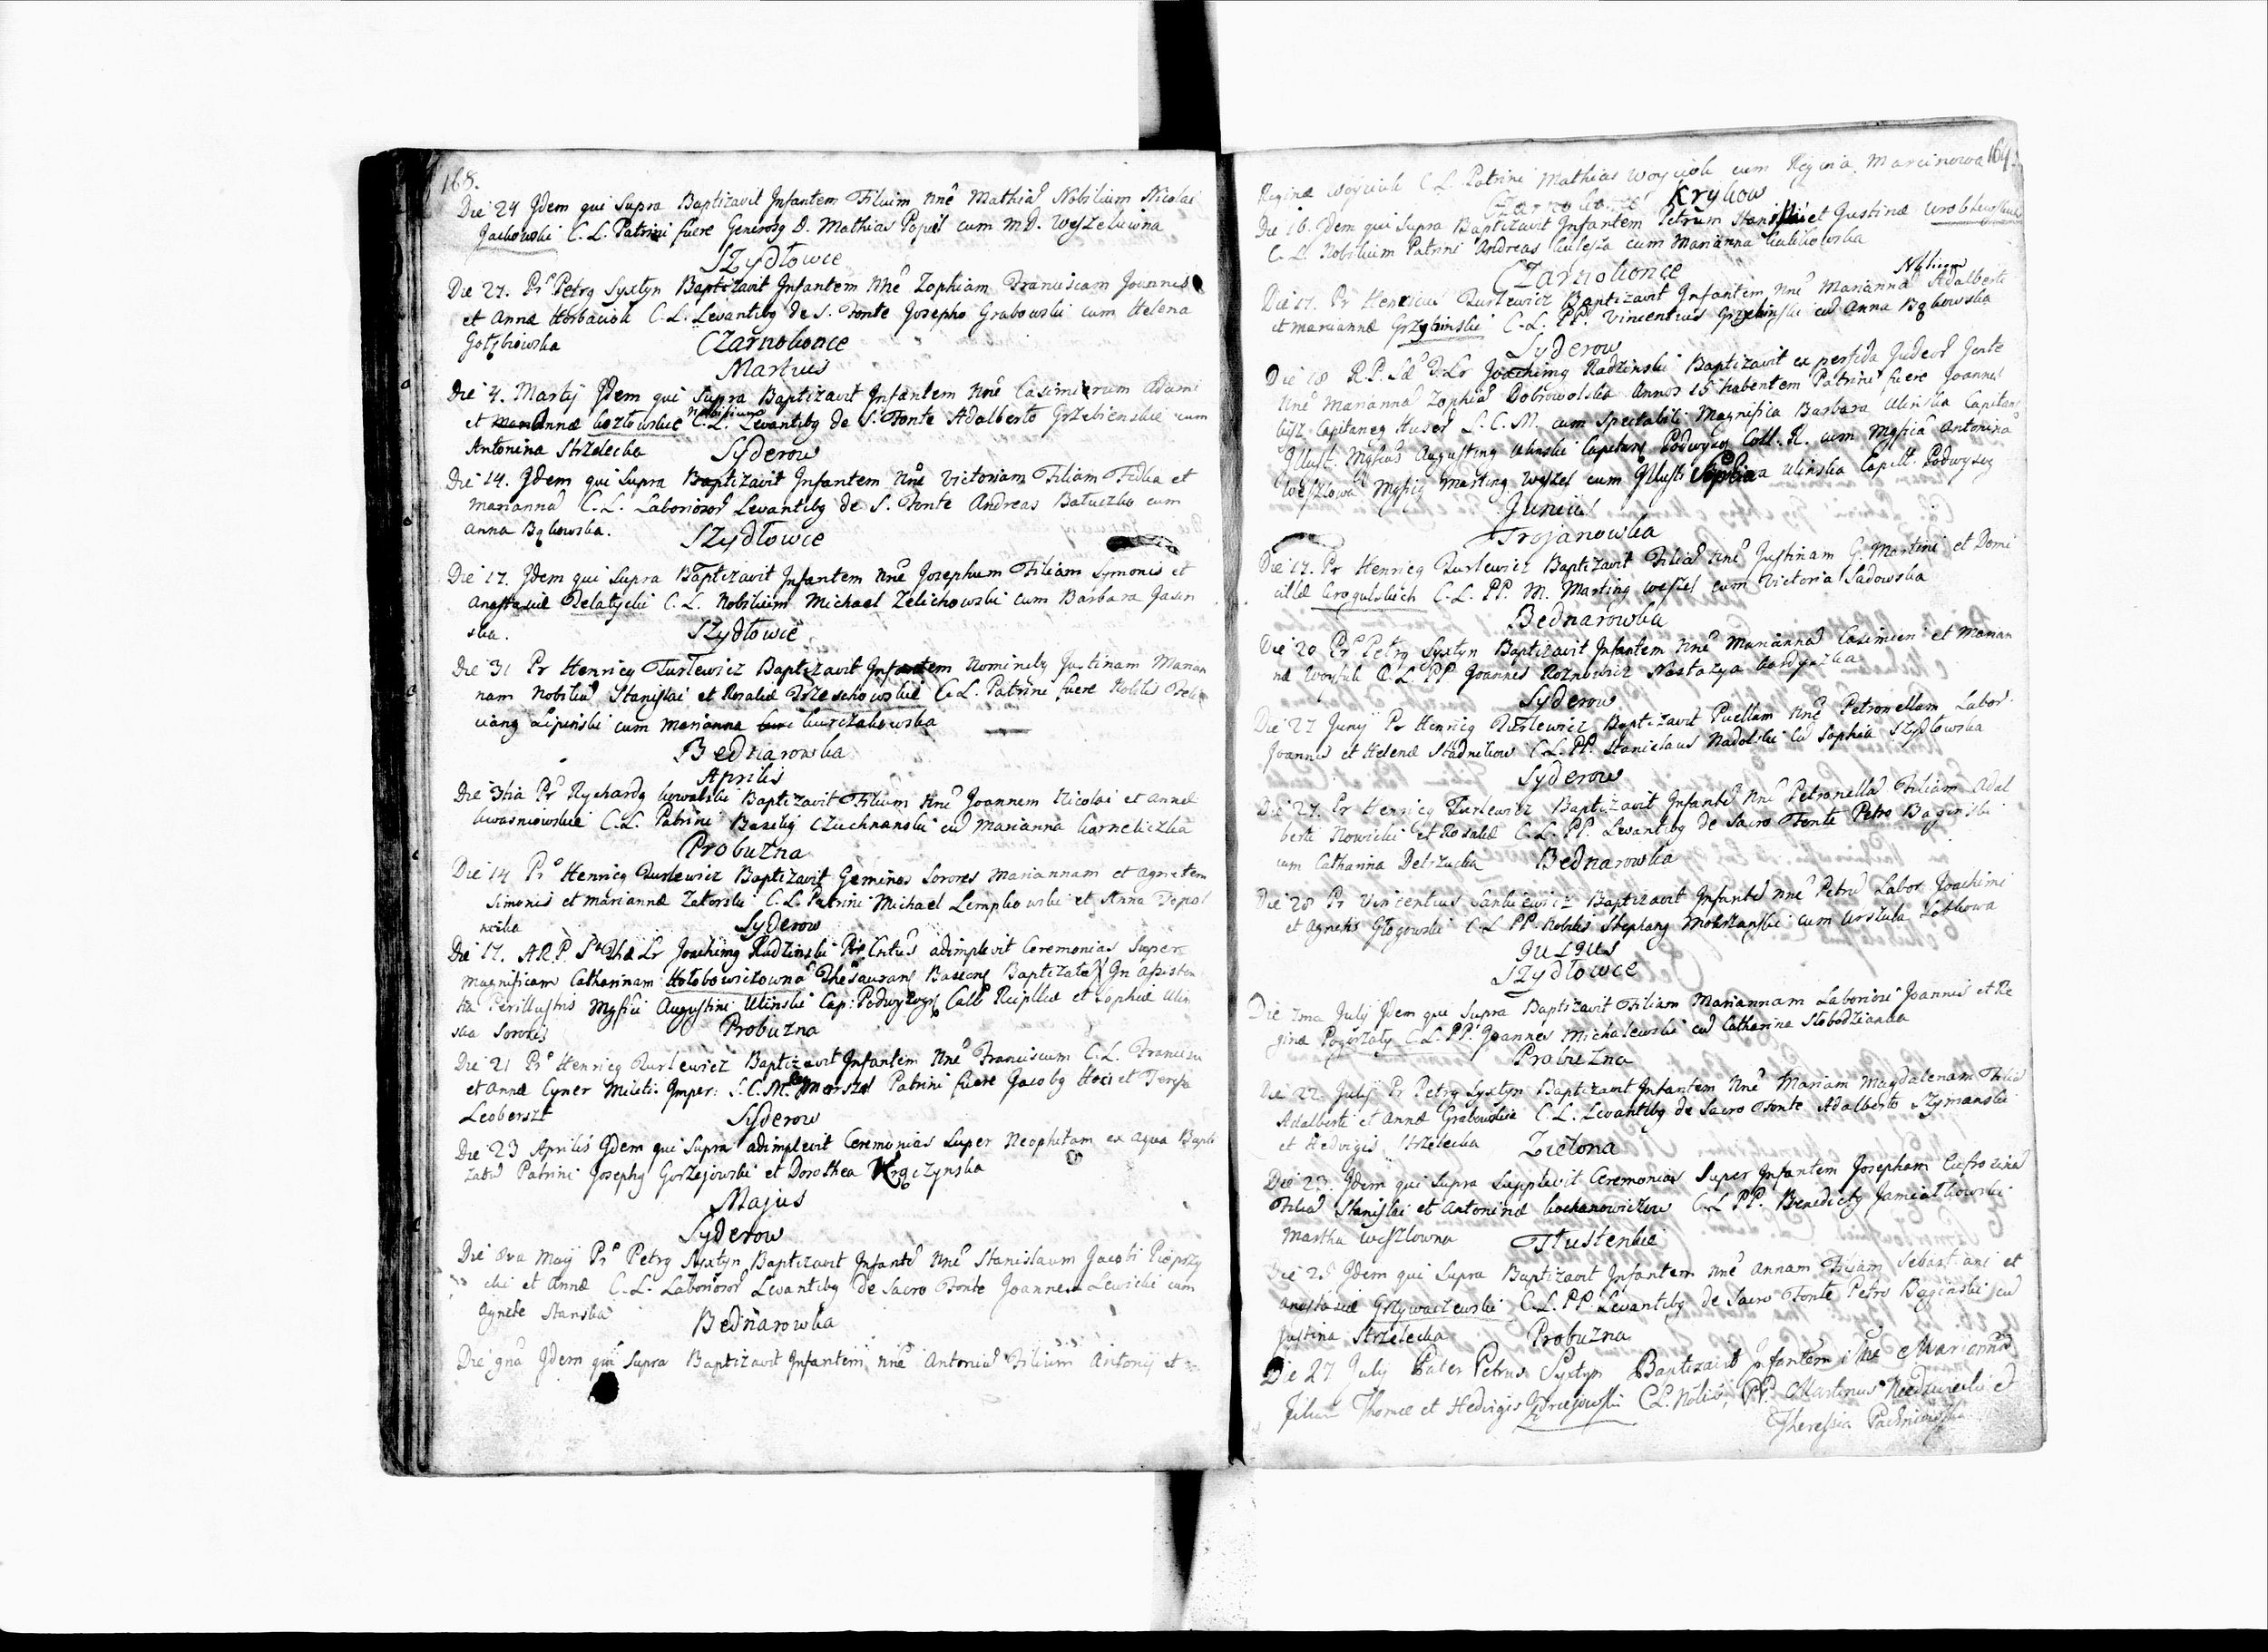 168.
Die 24 Idem qui Supra Baptizavit Infantem Filium nñe Mathiã Nobilium Nicolai
Jackowski C. L. Patrini fuere Generosg D. Mathias Popiel cum M D. Weszelowna
SZydłowce
Die 27. Pr Petrg Syxtyn Baptizavit Infantem Nñe Zophiam Franciscam Joannis
et Annæ Horbaciok C. L. Levantibg de S. Fonte Josepho Grabowski cum Helena
Gołębiowska
CZarnokonce
Martius
Die 4. Martij Idem qui Supra Baptizavit Infantem Nñe Casimirum Adami
et Mariannæ Kozłowskie Nobilium C. L. Levantibg de S. Fonte Adalberto Grzebienskie cum
Antonina Strzelecka
Syderow
Die 14. Idem qui Supra Baptizavit Infantem Nñe Victoriam Filiam Fidka et
Mariannã C. L. Laboriosor Levantibg de S. Fonte Andreas Batuczka cum
Anna Bąkowska.
SZydłowce
Die 17. Idem qui Supra Baptizavit Infantem Nñe Josephum Filiam Symonis et
Anastasiæ Delatycki C. L. Nobilium Michael Zelichowski cum Barbara Jasin
ska.
SZydłowce
Die 31 Pr Henricg Turlewicz Baptizavit Infantem Nominibg Justinam Marian
nam Nobiliũ Stanislai et Rosaliæ Orzechowskie C. L. Patrini fuere Nobilis Feli
ciang Lipinski cum Marianna Kurczakowska
Bednarowka
Aprilis
Die 3tia Pr Rychardg Kowalski Baptizavit Filium Nñe Joannem Nicolai et Annæ
Kwasniowskie C. L. Patrini Bazilij Czuchnanski cũ Marianna Korneliczka
Probuzna
Die 14 Pr Henricg Turlewicz Baptizavit Geminos Sorores Mariannam et Agnetem
Simonis et Mariannæ Zatorski C. L. Patrini Michael Lempkowski et Anna Topol
nicka
Syderow
Die 17. A R. P. Lr Joachimg Radzinski adimplevit Ceremonias Super
Magnificam Catharinam Hołobowiczowna Baptizatã In assisten
tia Perillustris Augustini Ulinski Cap: et Zophiæ Ulin
ska Sororis
Probuzna
Die 21 Pr Henricg Turlewicz Baptizavit Infantem Nñe Franciscum C. L. Francisci
et Annæ Cyner Militi. Imper: Patrini fuere Jacobg Hoci et Teresa
Leoberszt
Syderow
Die 23 Aprilis Idem qui Supra adimplevit Ceremonias Super Neophitam ex aqua Bapti
zatã Patrini Josephg Gorzejowski et Dorothea Kręczynska
Majus
Syderow
Die 8va Maij Pr Petrg Syxtyn Baptizavit Infantẽ Nñe Stanislaum Jacobi Pieprzy
cki et Annæ C. L. Laboriosor Levantibg de Sacro Fonte Joannes Lewicki cum
Agnete Stanska
Bednarowka
Die 9na Idem qui Supra Baptizavit Infantem Nñe Antoniũ Filium Antonij et
Reginæ Woyciok C. L. Patrini Mathias Woyciok cum Regina Marcinowa 169.
Krykow
Die 16. Idem qui Supra Baptizavit Infantem Petrum Stanislai et Justinæ Wroblewskich
C. L. Nobilium Patrini Andreas Kulesza cum Marianna Kulikowska
CZarnokonce
Die 17. Pr Henricus Turlewicz Baptizavit Infantem Nñe Mariannã Adalberti
et Mariannæ Grzybinski C. L. PP. Vincentius Grzebinski cũ Anna Bąkowska
Syderow
Die 18 R. P. Lr Joachimg Radzinski Baptizavit ex perfida Judeor Gente
Nñe Mariannã Zophiã Dobrowolska Annos 15 habentem Patrini fuere Joannes
Capitaneg S. C. M. cum Spectabili Magnifica Barbara Ulinska
Illust. Augusting Ulinski cum Antonina
Weszlowa Marting Weszel cum Illustri Ulinska
Junius
Trojanowka
Die 17. Pr Henricg Turlewicz Baptizavit Filiã Nñe Justinam G. Martini et Domi
cillæ Krogulskich C. L. PP. M. Marting Weszel cum Victoria Sadowska
Bednarowka
Die 20 Pr Petrg Syxtyn Baptizavit Infantem Nñe Mariannã Casimieri et Marian
næ Woytuk C. L. PP Joannes Roznowicz Nastazya
Syderow
Die 27 Junij Pr Henricg Turlewicz Baptizavit Puellam Nñe Petronellam Labor.
Joannis et Helenæ Stadnikow C. L. PP. Stanislaus Nadolski cũ Sophia SZydłowska
Syderow
Die 27. Pr Henricg Turlewicz Baptizavit Infantẽ Nñe Petronellã Filiam Adal
berti Nowicki et Rosaliæ C. L. PP. Levantibg de Sacro Fonte Petro Baginski
cum Catharina Delzucka
Bednarowka
Die 28 Pr Vincentius Sankiewicz Baptizavit Infantẽ Nñe Petrũ Labor Joachimi
et Agnetis Głogowski C. L PP. Nobilis Stephang Mokrzanski cum Urszula Lotkowa
JULIUS
SZydłowce
Die 2ma Julij Idem qui Supra Baptizavit Filiam Mariannam Laboriosi Joannis et Re
ginæ Pogorzały C. L. PP. Joannes Michalewski cũ Catharina Słobodzianka
Probuzna
Die 22 Julij Pr Petrg Syxtyn Baptizavit Infantem Nñe Mariam Magdalenam Filiã
Adalberti et Annæ Grabowskie C. L. Levantibg de Sacro Fonte Adalberto Szymanski
et Hedvigis Strzelecka
Zielona
Die 23. Idem qui Supra Supplevit Ceremonias Super Infantem Josepham Eufrozinã
Filiã Stanislai et Antoninæ Kochanowiczow C. L PP. Benedictg Jamiałkowski
Martha Weszlowna
Tłustenkie
Die 25 Idem qui Supra Baptizavit Infantem Nñe Annam Filiam Sebastiani et
Anastasiæ Grzywaczewski C. L. PP. Levantibg de Sacro Fonte Petro Baginski cũ
Justina Strzelecka
Probuzna
Die 27 July Pater Petrus Syxtyn Baptizavit Infantem Mariannã
Filiam Thomæ et Hedvigis C L. PP. Martinus Niedzwiecki et
Theressia